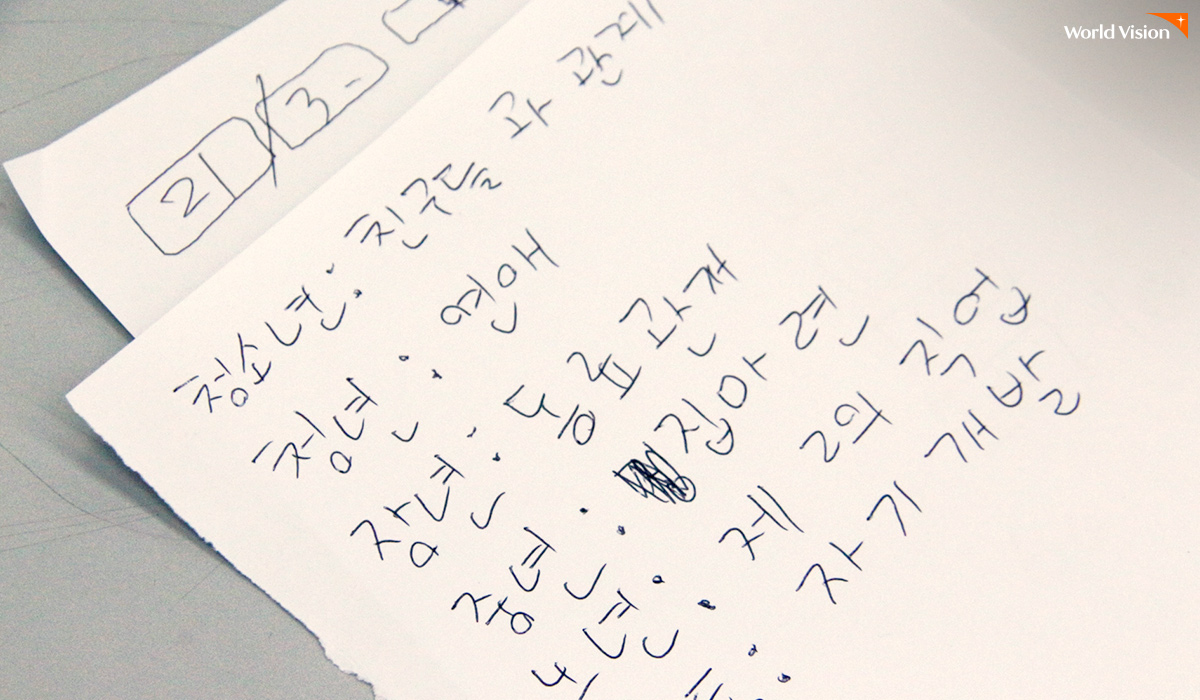 World Vision
21 3-
청소년: 친구들 과 관계
청년: 연애
장년: 동료관계
중년: 집마련
년: 제 2의 직업
: 자기개발